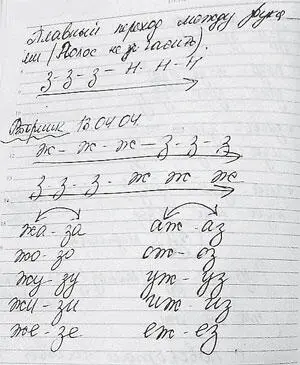 Плавный переход между букa
ми (Голос не гасить).
З-З-З-Н-Н-Н
Вторник 13.04.04
Ж-Ж-Ж-З-З-З
З-З-З-Ж Ж Ж
жа-за аж-аз
жо-зо ож-оз
жу-зу уж-уз
жи-зи иж-из
же-зе еж-ез